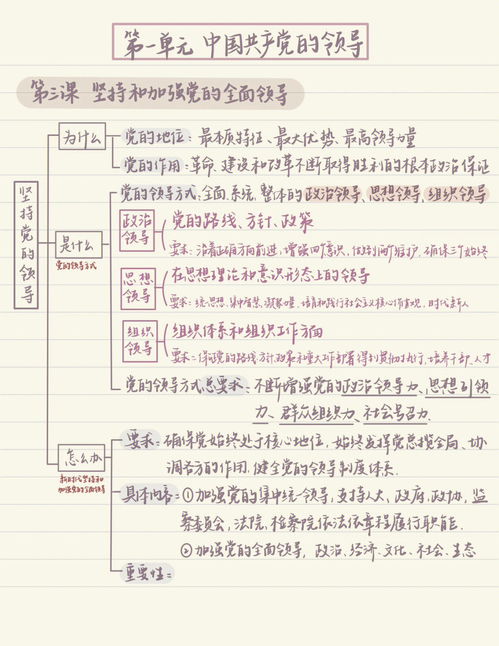 第一单元 中国共产党的领导
第三课 坚持和加强党的全面领导
坚持党的领导
为什么
党的地位：最本质特征、最大优势、最高领导力量
党的作用：革命、建设和改革不断取得胜利的根本政治保证
是什么
党的领导方式
党的领导方式：全面、系统、整体的政治领导、思想领导、组织领导
政治领导
党的路线、方针、政策
要求：沿着正确方向前进，增强四个意识，做到两个维护，确保三个始终
思想领导
在思想理论和意识形态上的领导
要求：统一思想、
培育和践行社会主义核心价值观，时代新人
组织领导
组织体系和组织工作方面
要求：保证党的路线、方针政策和重大工作部署得到贯彻执行，培养干部、人才
党的领导方式总要求：不断增强党的政治领导力、思想引领
力、群众组织力、社会号召力.
怎么办
加强党的全面领导
要求：确保党始终处于核心地位，始终发挥党总揽全局、协
调各方的作用，健全党的领导制度体系.
具体内容：①加强党的集中统一领导，支持人大，政府，政协，监
察委员会，法院，检察院依法依章程履行职能.
②加强党的全面领导，政治、经济、文化、社会、生态
重要性：